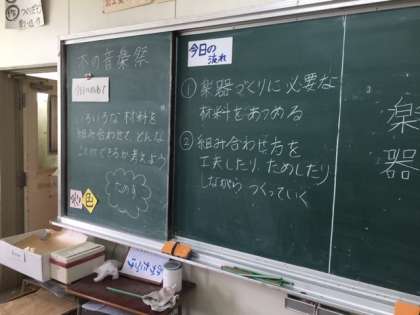 木の音楽祭
今日のめあて
いろいろな材料を
組み合わせて、どんな
ことができるか考えよう
色
今日の
流れ
① 楽器づくりに必要な
材料をあつめる
② 組み合わせ方を
工夫したり、ためしたり
しながら つくっていく
楽
器